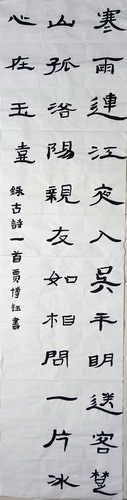 寒雨連江夜入吳平明送客楚
山孤洛陽親友如相問一片冰
心在玉壺
錄古詩一首賈博鈺書